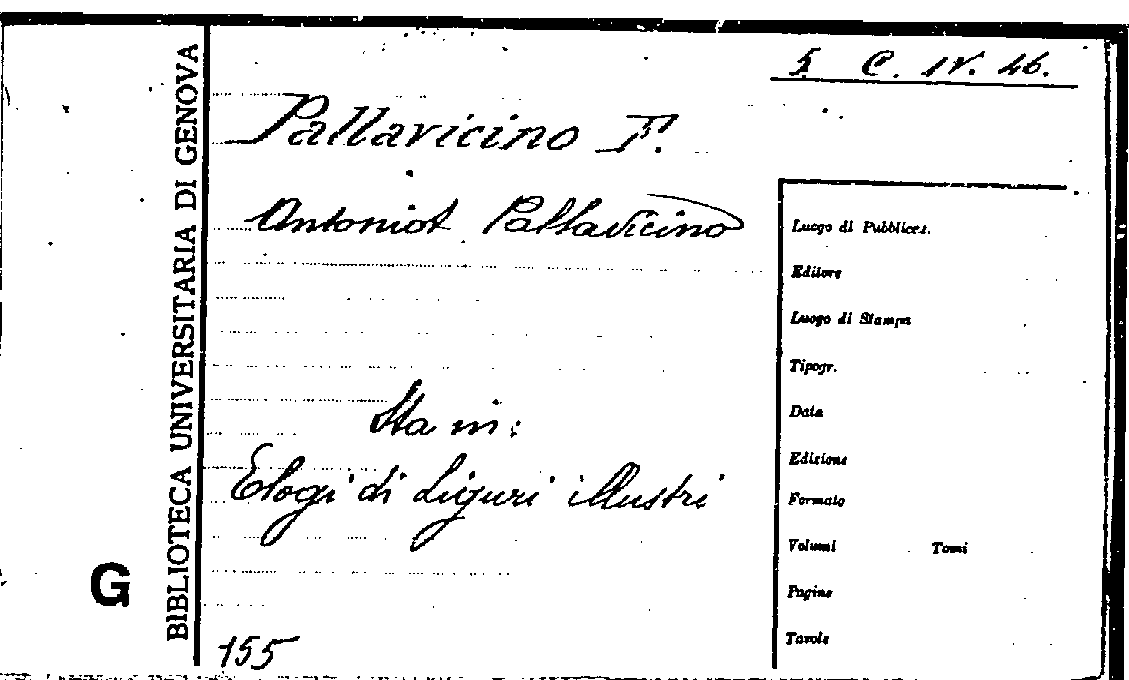 5 C. IV. 46.
Pallavicino F.
Antoniot Pallavicino
Sta in:
Elogi di Liguri illustri
155
G
BIBLIOTECA UNIVERSITARIA DI GENOVA
Luogo di Pubblicaz.
Editore
Luogo di Stampa
Tipogr.
Data
Edizione
Formato
Volumi Tomi
Pagine
Tavole